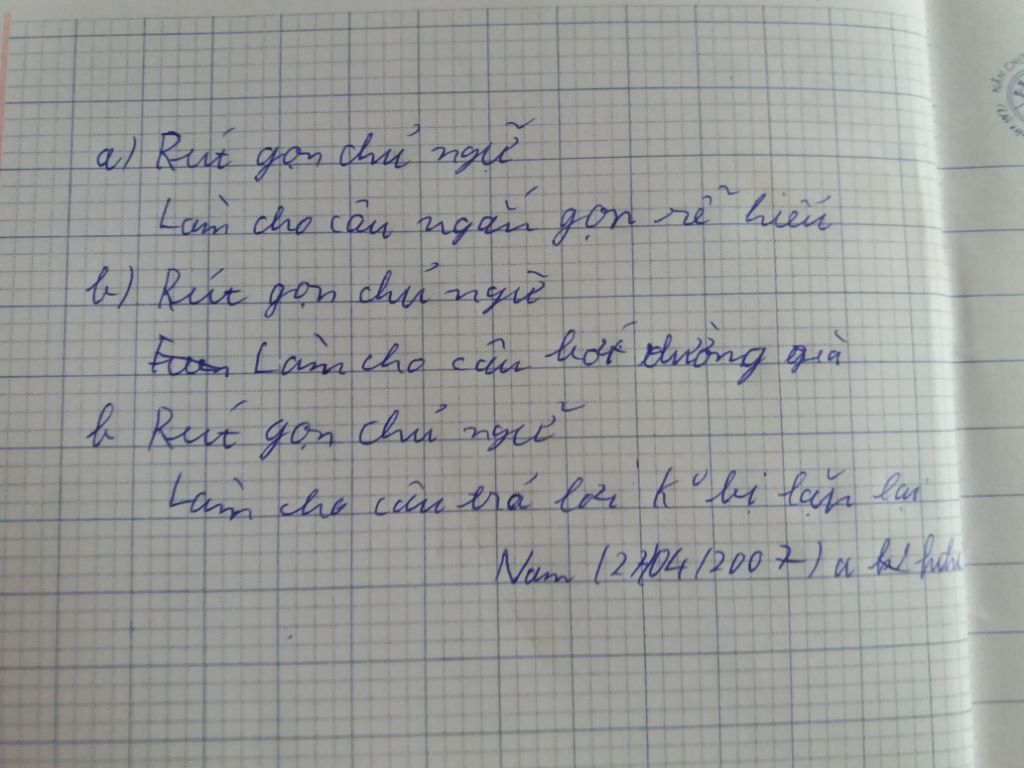 a) Rút gọn chủ ngữ
Làm cho câu ngắn gọn rễ hiểu
b) Rút gọn chủ ngữ
Làm cho câu bớt dườm già
b Rút gọn chủ ngữ
Làm cho câu trả lời k° bị lặp lại
Nam (2